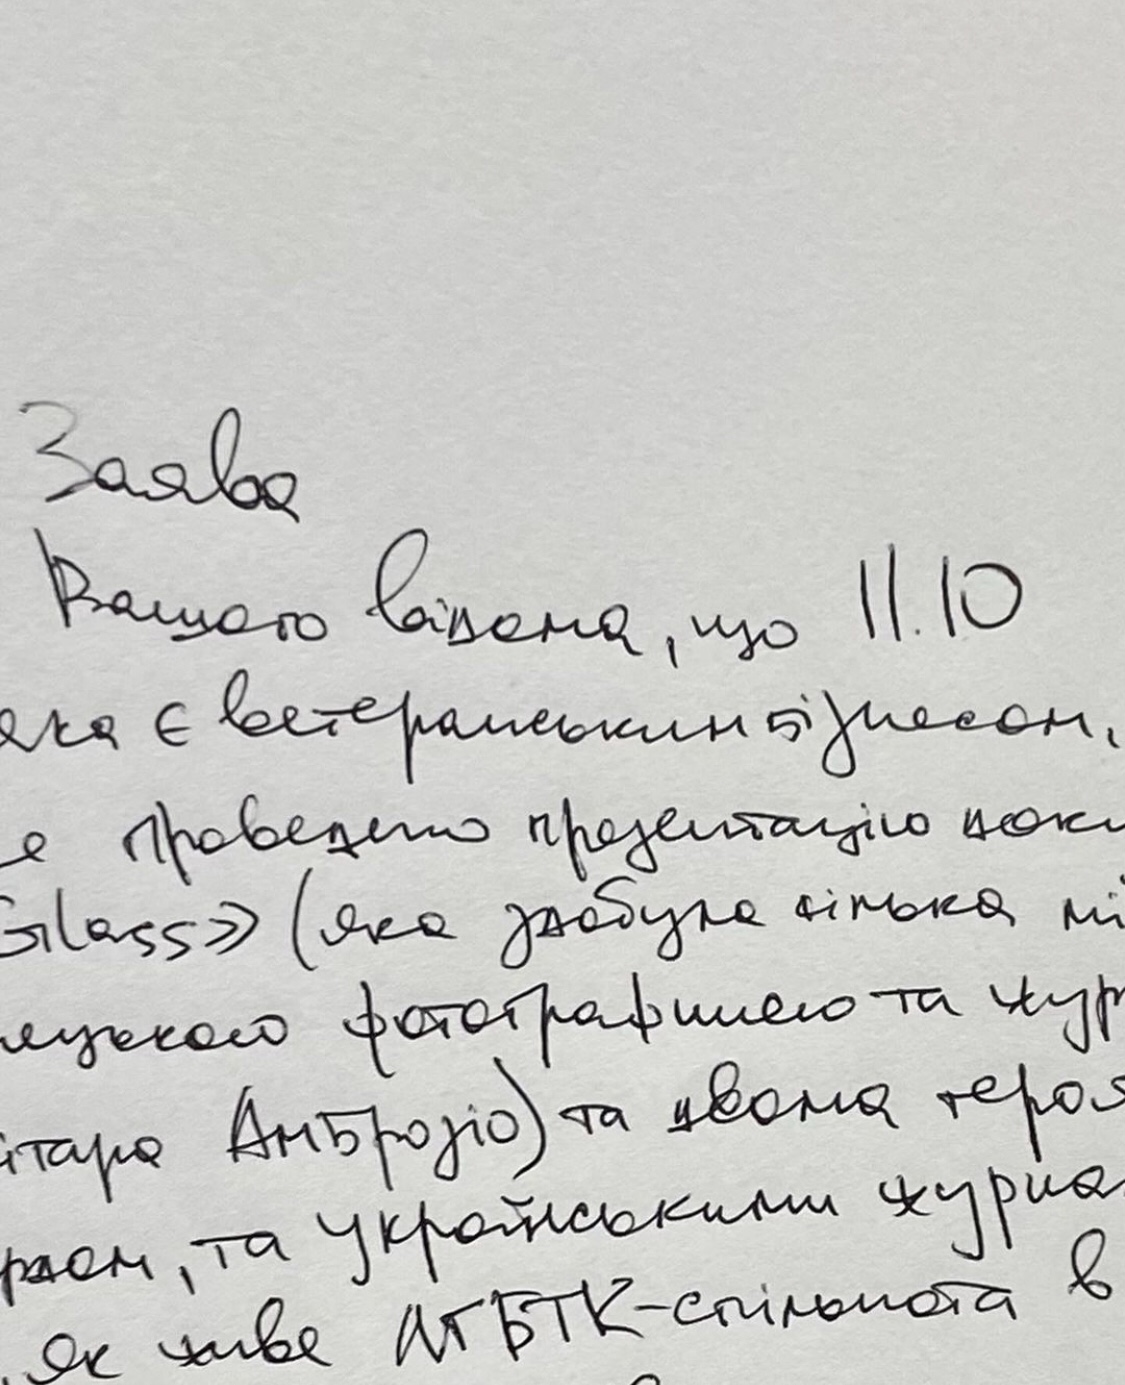 Заява
Вашого відома, що 11.10
яка є ветеранським бізнесом,
е проведено презентацію доку
Glass» (яка здобула кілька мі
мецькою фотографинею та жур
ітара Амброзіо) та двома героя
рдом, та українськими журна
як живе ЛГБТК-спільнота в